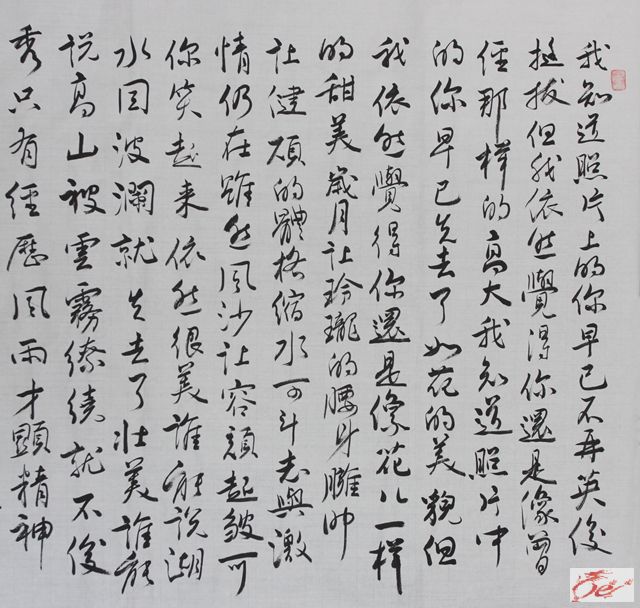 我知道照片上的你早已不再英俊
挺拔但我依然覺得你還是像曾
經那樣的高大我知道照片中
的你早已失去了如花的美貌但
我依然覺得你還是像花儿一樣
的甜美歲月让玲瓏的腰身臃肿
让健碩的體格缩水可斗志與激
情仍在雖然风沙让容顏起皺可
你笑起来依然很美谁能说湖
水因波澜就失去了壮美谁能
说高山被雲霧缭绕就不俊
秀只有經歷风雨才顯精神